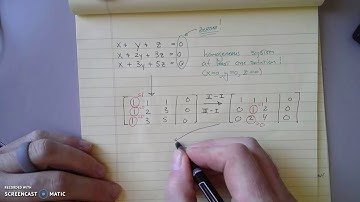 zeroes!
x + y + z = 0
x + 2y + 3z = 0
x + 3y + 5z = 0
homogeneous system
at least one solution!
(x=0, y=0, z=0)
1 1 1 | 0 II-I 1 1 1 | 0
1 2 3 | 0 → 0 1 2 | 0
1 3 5 | 0 III-I 0 2 4 | 0
RECORDED WITH
SCREENCAST MATIC